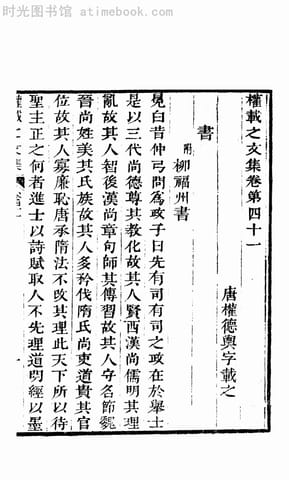 时光图书馆 - atimebook.com
權載之文集卷第四十一
唐權德輿字載之
書
附
柳福州書
冕白昔仲弓問爲政子曰先有司有司之政在於舉士
是以三代尚德尊其敎化故其人賢西漢尚儒明其理
亂故其人智後漢尚章句師其傳習故其人守名節魏
晉尚姓美其氏族故其人多矜伐隋氏尚吏道貴其官
位故其人寡廉恥唐承隋法不改其理此天下所以待
聖主正之何者進士以詩賦取人不先理道明經以墨